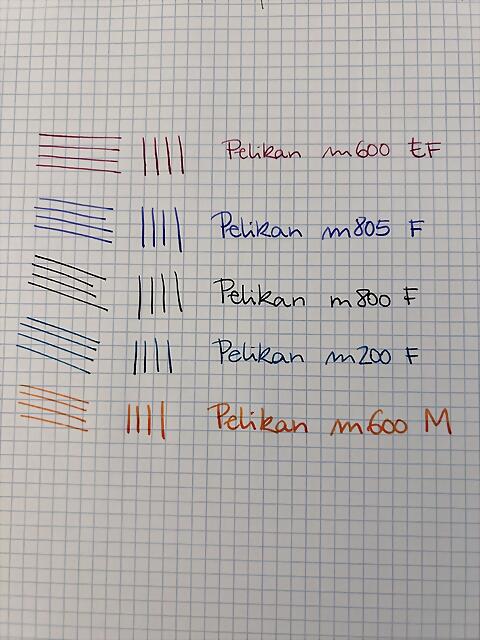 Pelikan m600 EF
Pelikan m805 F
Pelikan m800 F
Pelikan m200 F
Pelikan m600 M